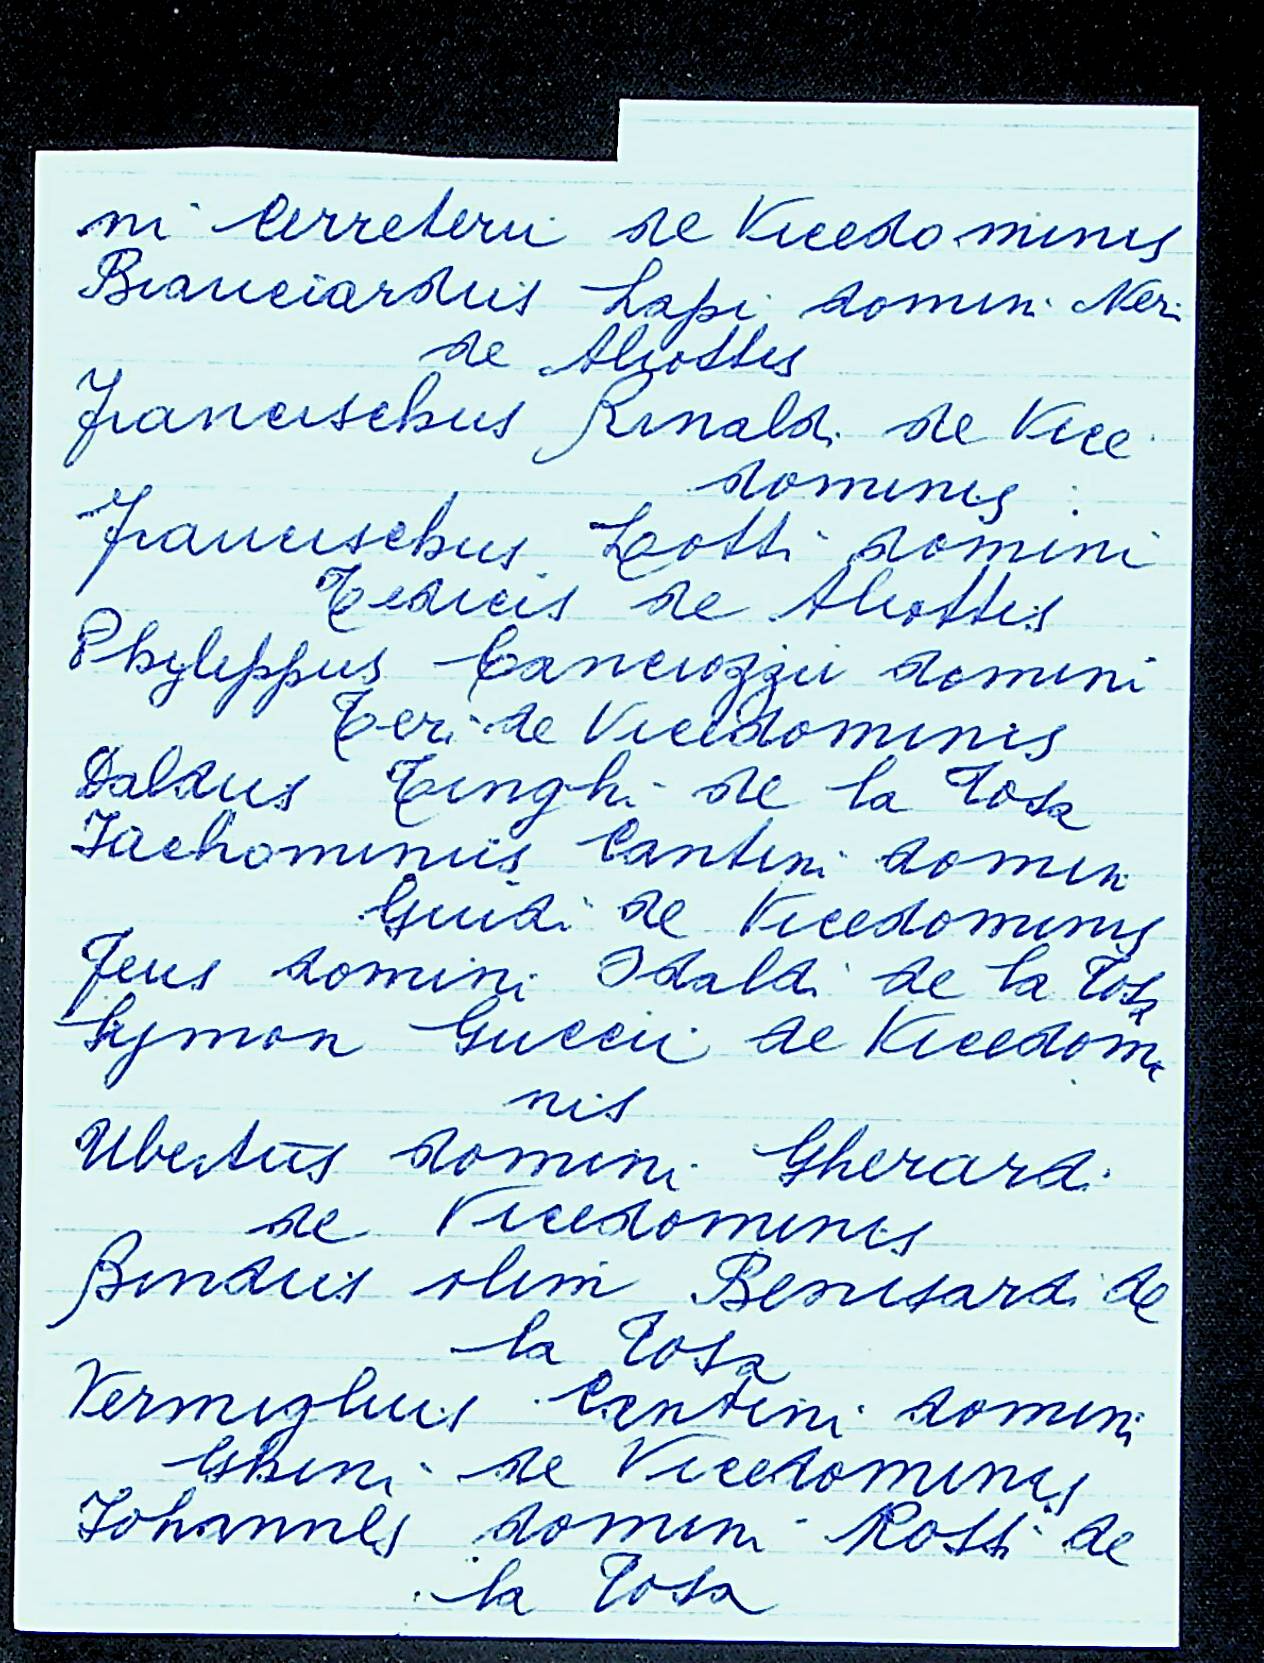 ni Cerreterii de Vicedominis
Bianciardus Lapi domini Neri
de Aliottis
Francischus Rinaldi de Vice
dominis
Francischus Lotti domini
Tedicis de Aliottis
Phylippus Canciozzii domini
Teri de Vicedominis
Daldus Tinghi de la Tosa
Iachominus Cantini domin
Guidi de Vicedominis
Feus domini Odaldi de la Tosa
Symon Guccii de Vicedomi
nis
Ubertus domini Gherardi
de Vicedominis
Bindus olim Benisardi de
la Tosa
Vermiglius Cantini domini
Ghini de Vicedominis
Iohannes domini Rossi de
la Tosa